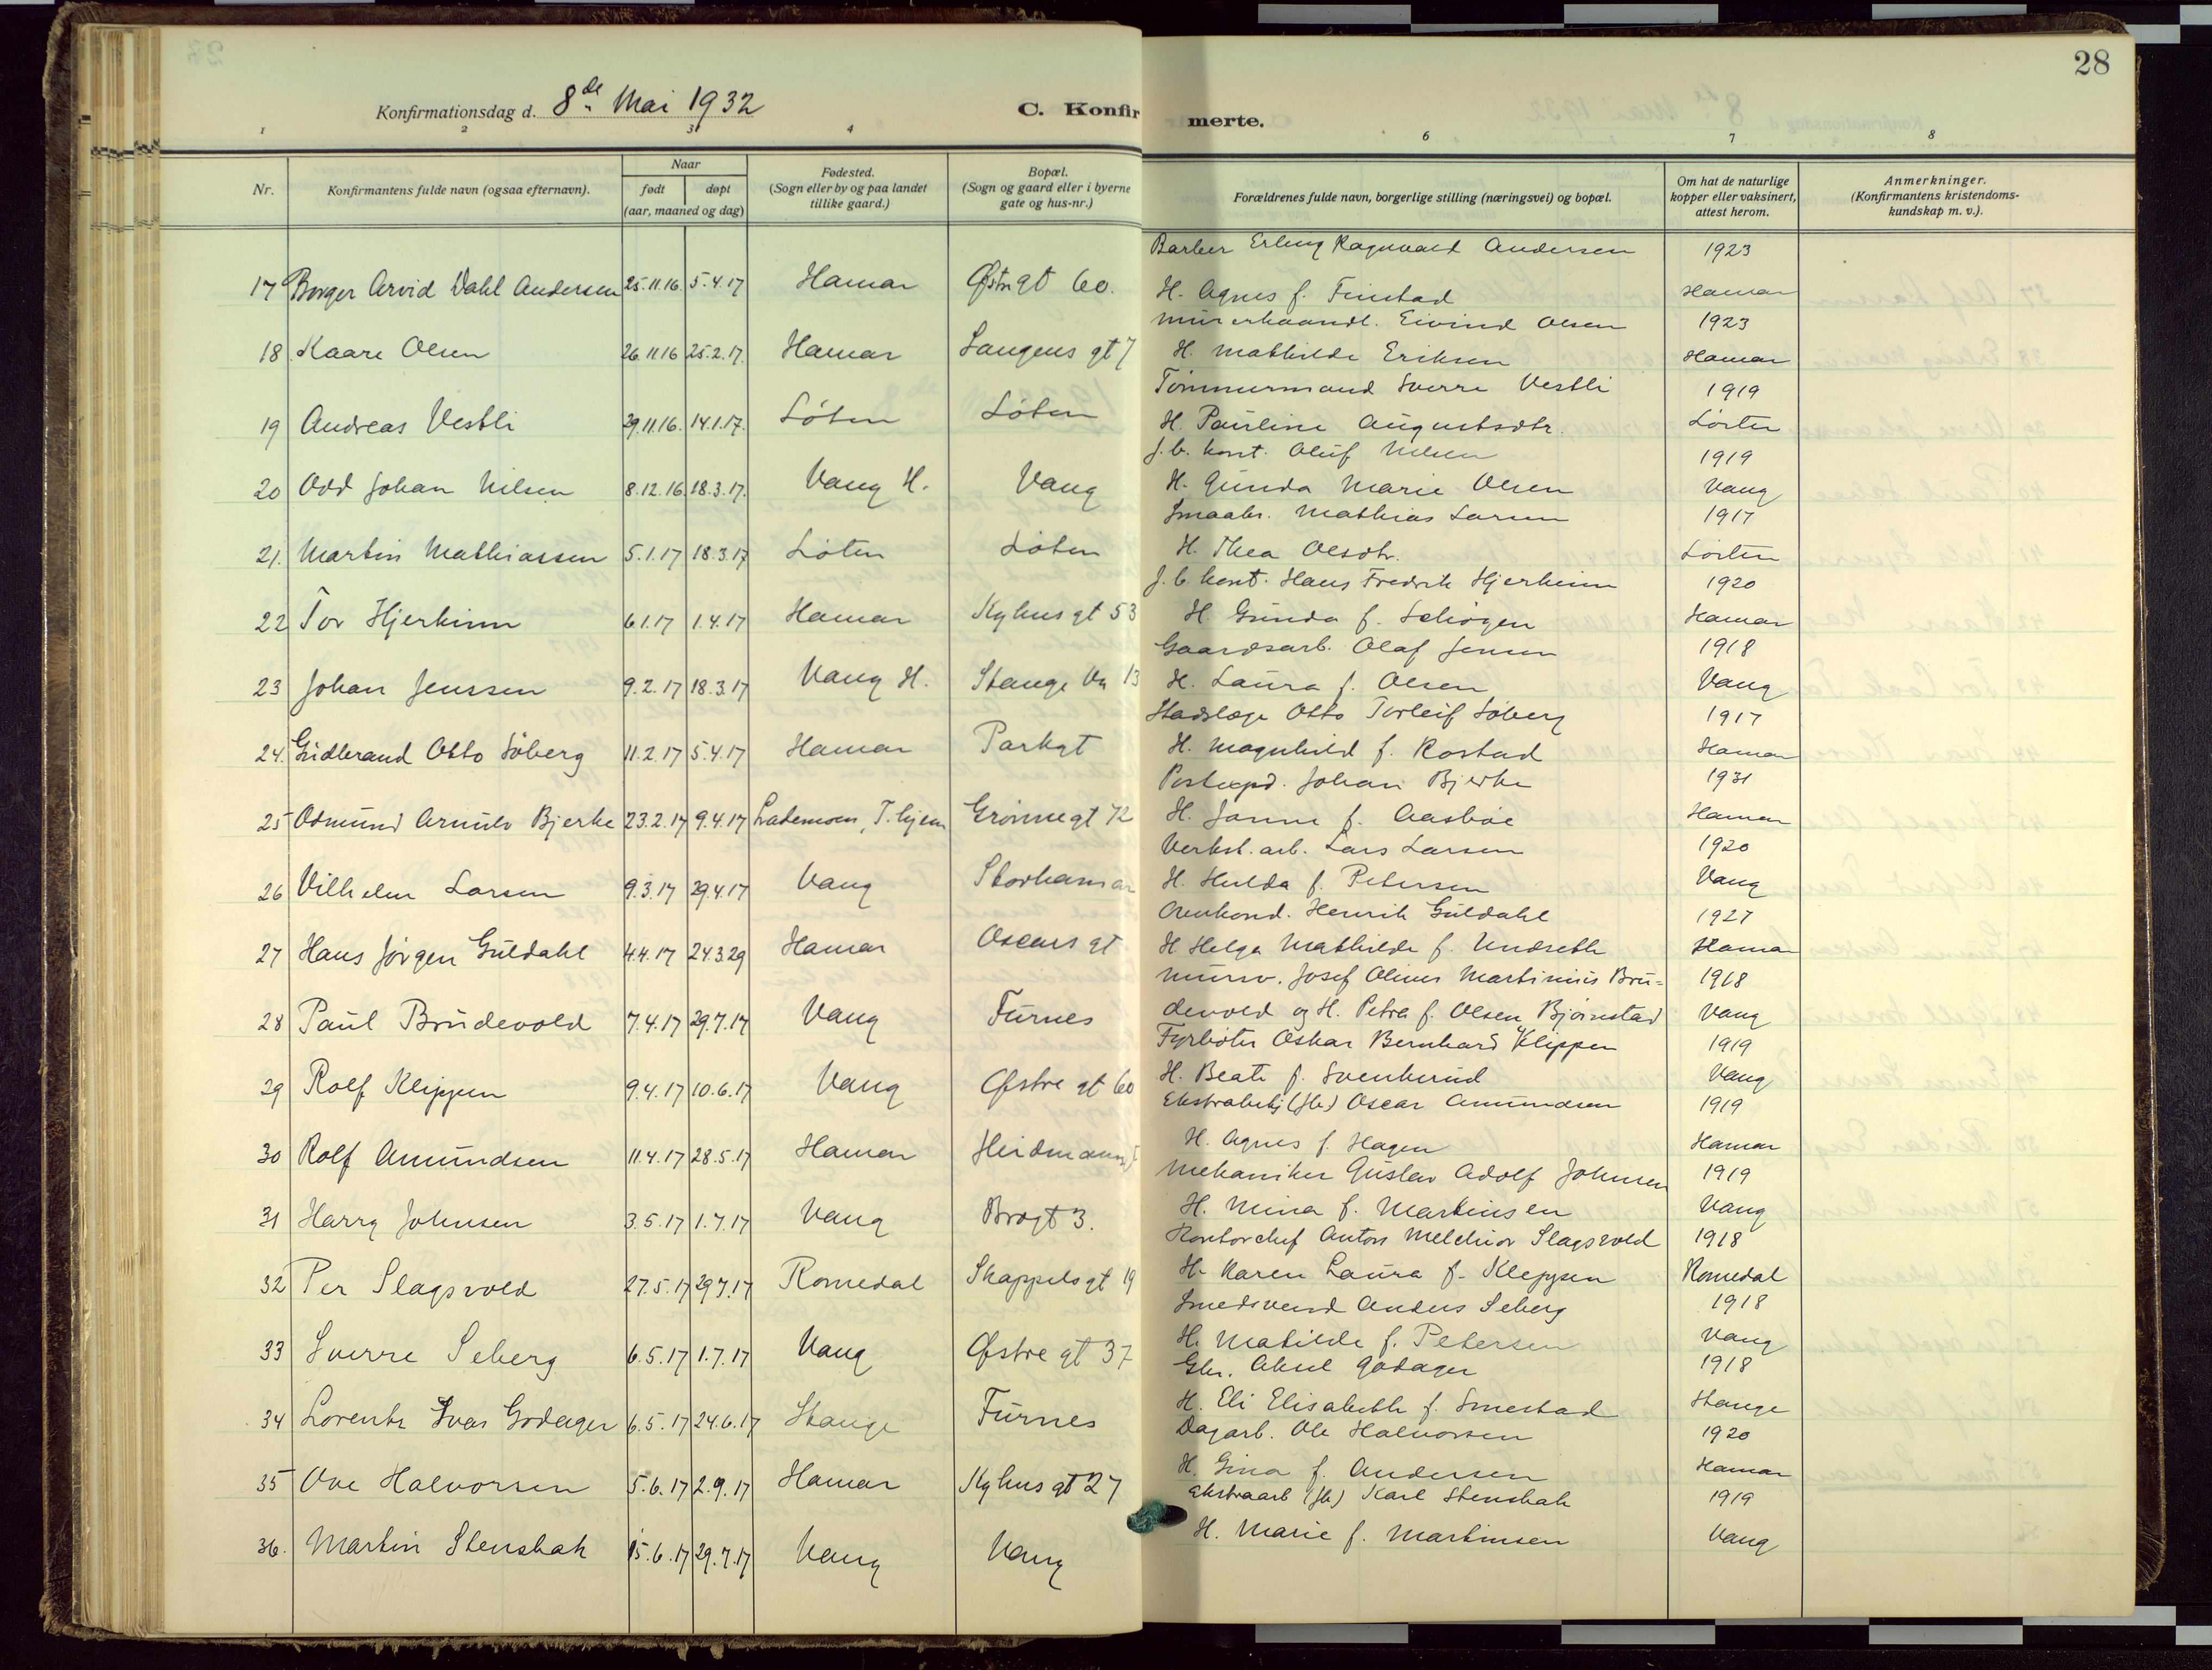 28
Konfirmationsdag d. 8de Mai 1932
C. Konfirmerte.
1 2 3 4 6 7 8
Nr.
Konfirmantens fulde navn (ogsaa efternavn).
Naar
født døpt
(aar, maaned og dag)
Fødested.
(Sogn eller by og paa landet
tillike gaard.)
Bopæl.
(Sogn og gaard eller i byerne
gate og hus-nr.)
Forældrenes fulde navn, borgerlige stilling (næringsvei) og bopæl.
Om hat de naturlige
kopper eller vaksinert,
attest herom.
Anmerkninger.
(Konfirmantens kristendoms-
kundskap m. v.).
Barber Erling Ragnvald Andersen 1923
17 Borger Arvid Dahl Andersen 25.11.16. 5.4.17 Hamar Østregt 60. H. Agnes f. Finstad Hamar
Murerhaandl. Eivind Olsen 1923
18. Kaare Olsen 26.11.16 25.2.17. Hamar Langens gt 7 H. Mathilde Eriksen Hamar
Tømmermand Sverre Vestli 1919
19 Andreas Vestli 29.11.16. 14.1.17. Løten Løten H. Pauline Augustsdtr. Løiten
J.b. konst. Oluf Nilsen 1919
20 Odd Johan Nilsen 8.12.16. 18.3.17. Vang H. Vang H. Gunda Marie Olsen Vang
Smaabr. Mathias Larsen 1917
21. Martin Mathiassen 5.1.17 18.3.17 Løten Løten H. Thea Olsdtr. Løiten
J.b. konst. Hans Fredrik Hjerkinn 1920
22 Tor Hjerkinn 6.1.17 1.4.17 Hamar Kyhus gt 53 H. Gunda f. Schøgen Hamar
Gaardsarb. Olaf Jensen 1918
23 Johan Jenssen 9.2.17 18.3.17 Vang H. Stange vn 13 H. Laura f. Olsen Vang
Stadslæge Otto Torleif Søberg 1917
24. Gudbrand Otto Søberg 11.2.17 5.4.17 Hamar Parkgt H. Magnhild f. Rostad Hamar
Postexpd. Johan Bjerke 1931
25 Odmund Arnulv Bjerke 23.2.17 9.4.17 Lademoen, T.hjem Grønnegt 72 H. Janna f. Aasbøe Hamar
Verkst. arb. Lars Larsen 1920
26 Vilhelm Larsen 9.3.17 29.4.17 Vang Storhamar H. Hulda f. Petersen Vang
Henrik Guldahl 1927
27 Hans Jørgen Guldahl 4.4.17 24.3.29 Hamar Oscars gt H Helga Mathilde f. Undseth Hamar
Murersv. Josef Oliver Martinius Bru= 1918
28 Paul Brudevold 7.4.17 29.7.17 Vang Furnes devold og H. Petra f. Olsen Bjørnstad Vang
Fyrbøter Oskar Bernhard Klippen 1919
29 Rolf Klippen 9.4.17 10.6.17 Vang Østre gt 60 H. Beate f. Svenkerud Vang
Ekstrabetj (jb.) Oscar Amundsen 1919
30 Rolf Amundsen 11.4.17 28.5.17 Hamar Heidmann H. Agnes f Hagen Hamar
Mekaniker Gustav Adolf Johnsen 1919
31 Harry Johnsen 3.5.17 1.7.17 Vang Brogt 3. H. Mina f. Martinsen Vang
Kontorchef Anton Melchior Slagsvold 1918
32 Per Slagsvold 27.5.17 29.7.17 Romedal Skappels gt 19 H. Karen Laura f. Kleppen Romedal
Smedsvend Anders Seberg 1918
33 Sverre Seberg 6.5.17 1.7.17 Vang Østre gt 37 H. Matilde f. Petersen Vang
Gbr. Aksel Godager 1918
34 Lorentz Ivar Godager 6.5.17 24.6.17 Stange Furnes H. Eli Elisabeth f. Smestad Stange
Dagarb. Ole Halvorsen 1920
35 Ove Halvorsen 5.6.17 2.9.17 Hamar Kyhus gt 27 H. Gina f. Andersen Hamar
Ekstraarb (jb) Karl Stenshak 1919
36. Martin Stenshak 15.6.17 29.7.17 Vang Vang H. Marie f. Martinsen Vang